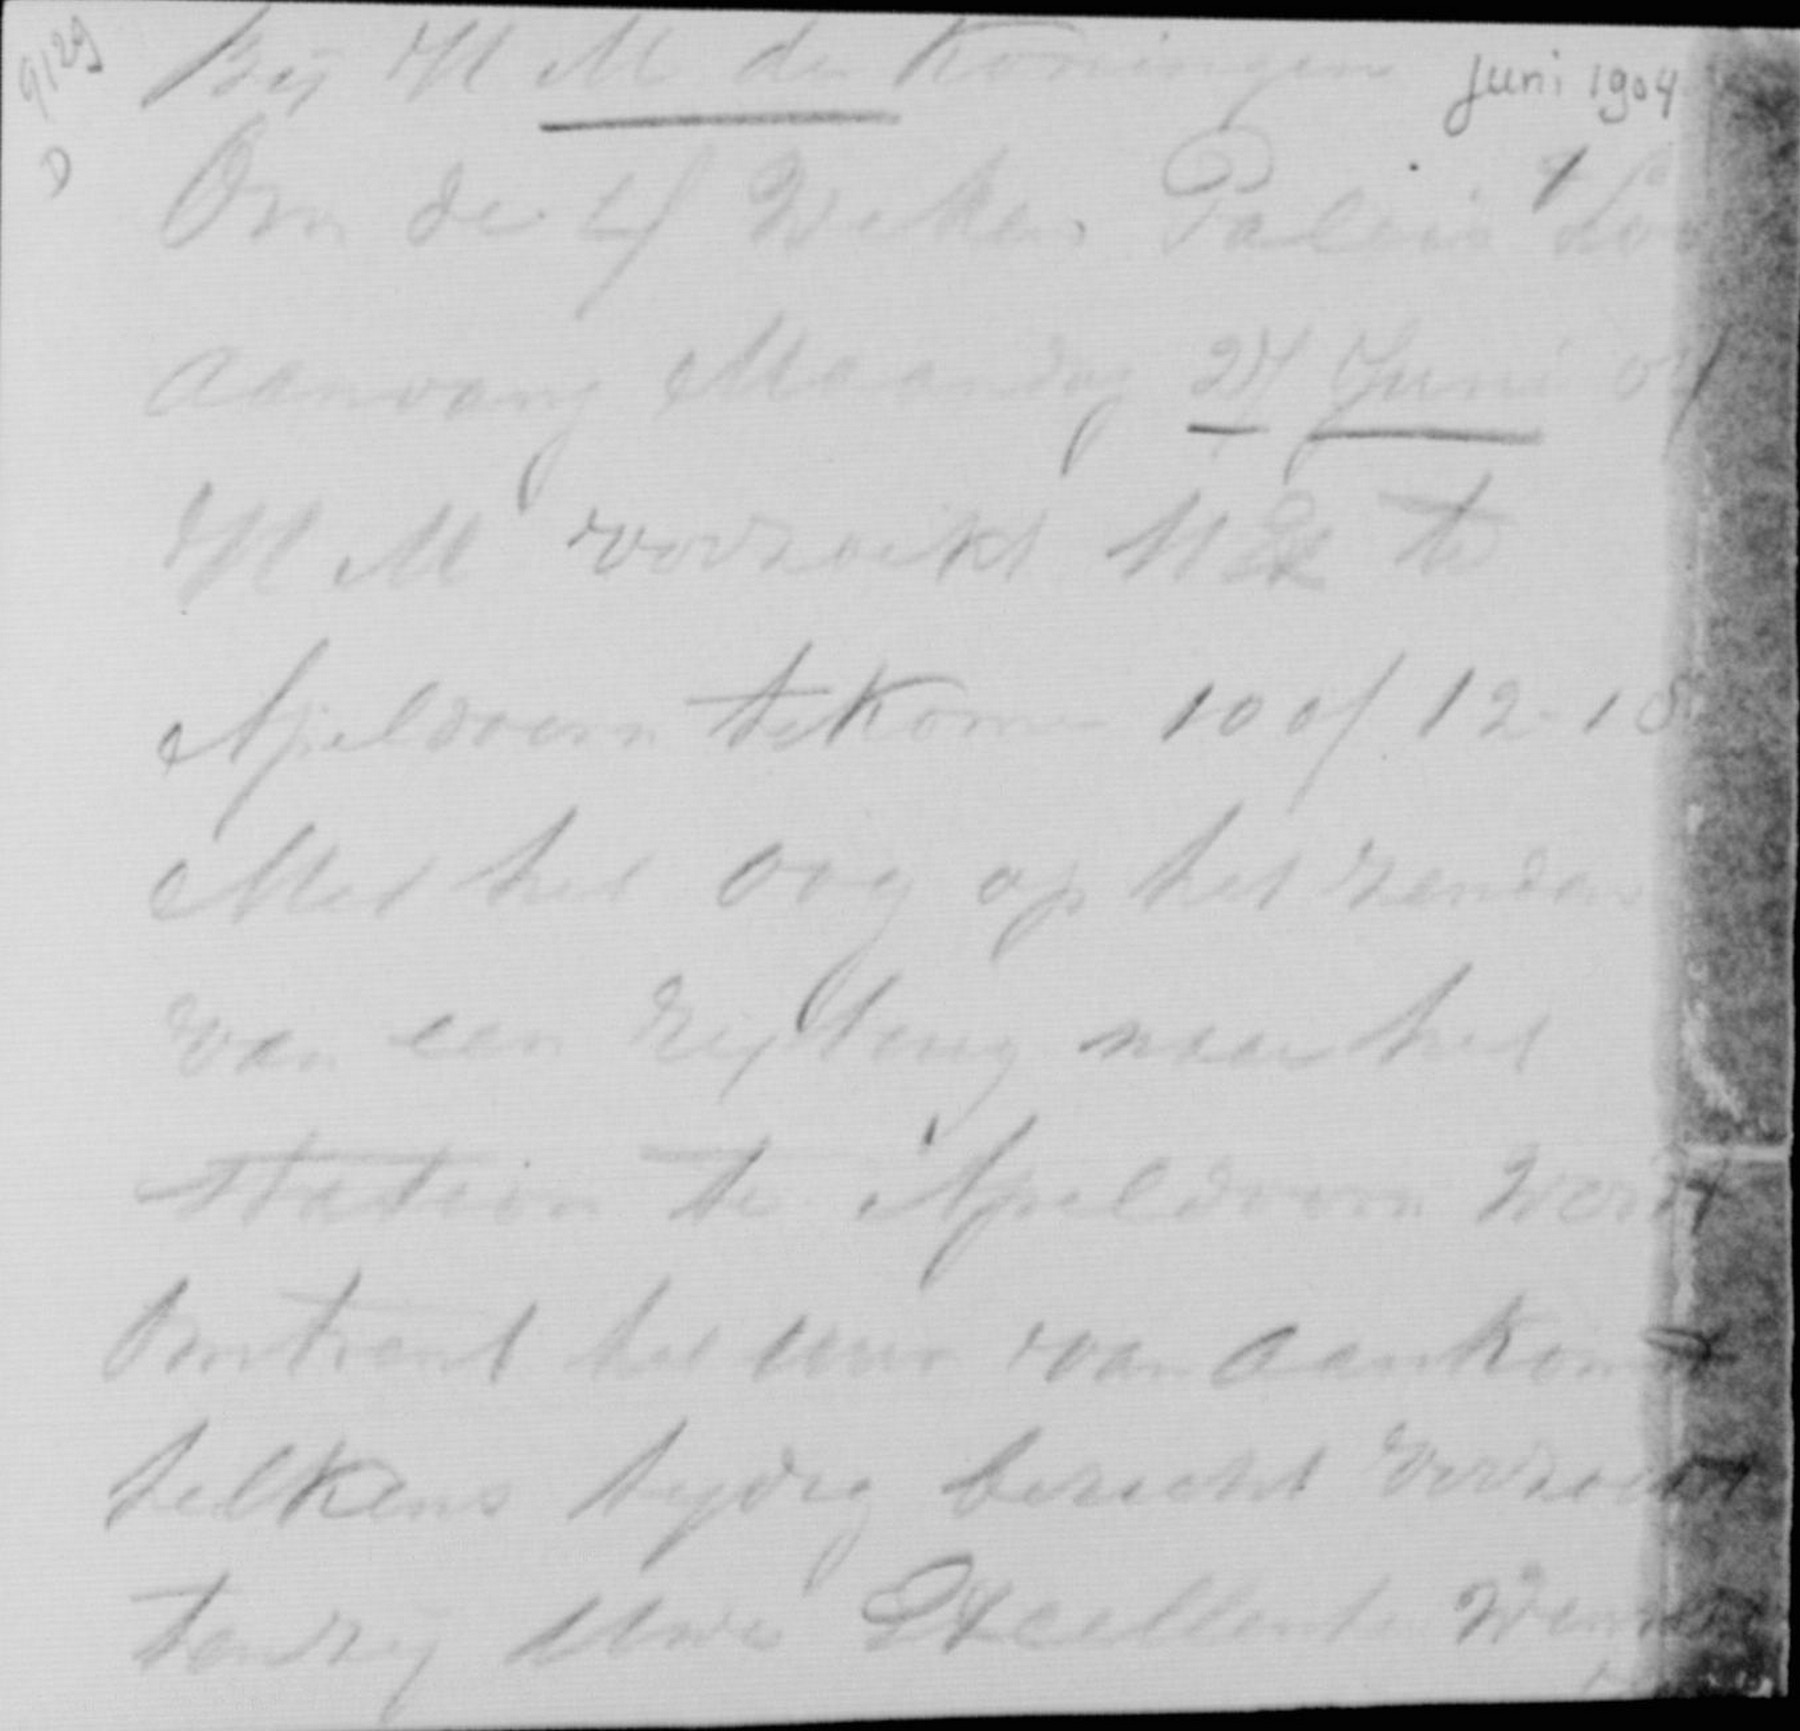 9129
D
Juni 1904
Bij H M de Koningin
Om de 4 Weken Paleis Loo
aanvang Maandag 27 Juni 04
H M verzoekt UEx te
Apeldoorn te komen 10 of 12-18
Met het oog op het zenden
van een rijtuig naar het
station te Apeldoorn werdt
omtrent het uur van aankomst
telkens tijdig bericht verzocht
tenzij Uwe Excellentie